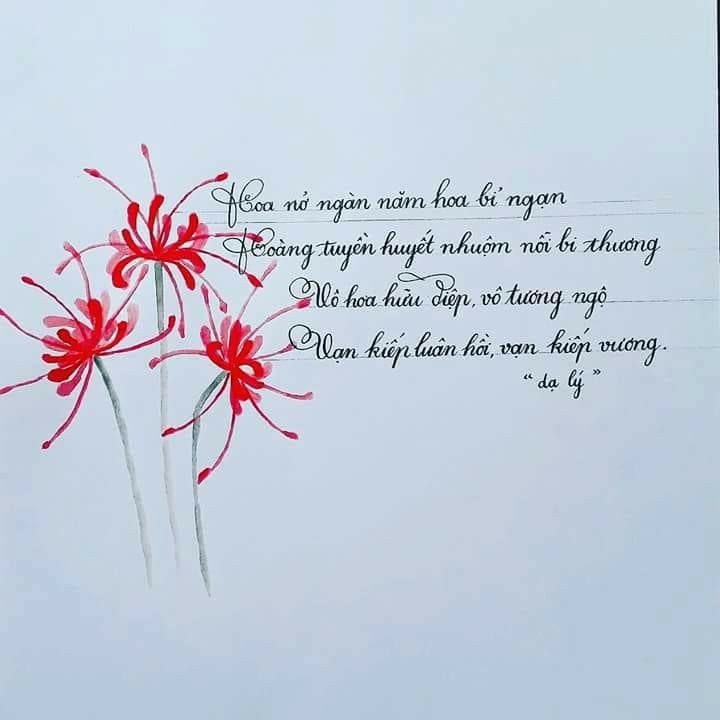 Hoa nở ngàn năm hoa bỉ ngạn
Hoàng tuyền huyết nhuộm nỗi bi thương
Vô hoa hữu diệp, vô tương ngộ
Vạn kiếp luân hồi, vạn kiếp vương.
“ dạ lý ”